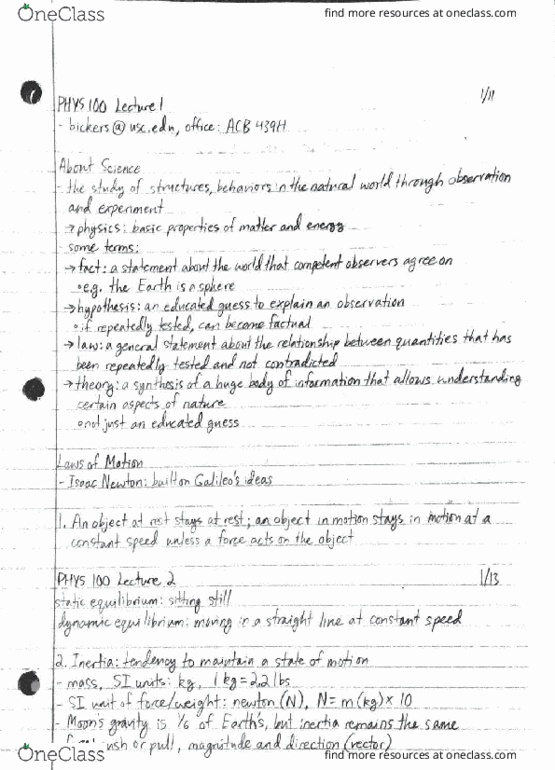 OneClass
find more resources at oneclass.com
PHYS 100 Lecture 1
1/11
- bickers@usc.edu, office: ACB 439H
About Science
- the study of structures, behaviors in the natural world through observation
and experiment
→ physics: basic properties of matter and energy
some terms:
→ fact: a statement about the world that competent observers agree on
• e.g. the Earth is a sphere
→ hypothesis: an educated guess to explain an observation
• if repeatedly tested, can become factual
→ law: a general statement about the relationship between quantities that has
been repeatedly tested and not contradicted
→ theory: a synthesis of a huge body of information that allows understanding
certain aspects of nature
• not just an educated guess
Laws of Motion
- Isaac Newton: built on Galileo's ideas
1. An object at rest stays at rest; an object in motion stays in motion at a
constant speed unless a force acts on the object
PHYS 100 Lecture 2
1/13
static equilibrium: sitting still
dynamic equilibrium: moving in a straight line at constant speed
2. Inertia: tendency to maintain a state of motion
- mass, SI units: kg, 1 kg = 2.2 lbs
- SI unit of force/weight: newton (N), N = m (kg) × 10
- Moon's gravity is 1/6 of Earth's, but inertia remains the same
or pull, magnitude and direction (vector)
OneClass
find more resources at oneclass.com